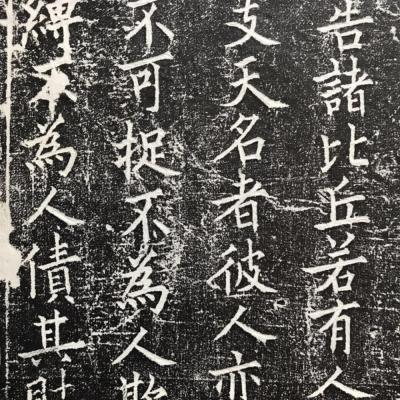 告諸比丘若有人
支天名者彼人亦
不可捉不為人欺
縛不為人債其財